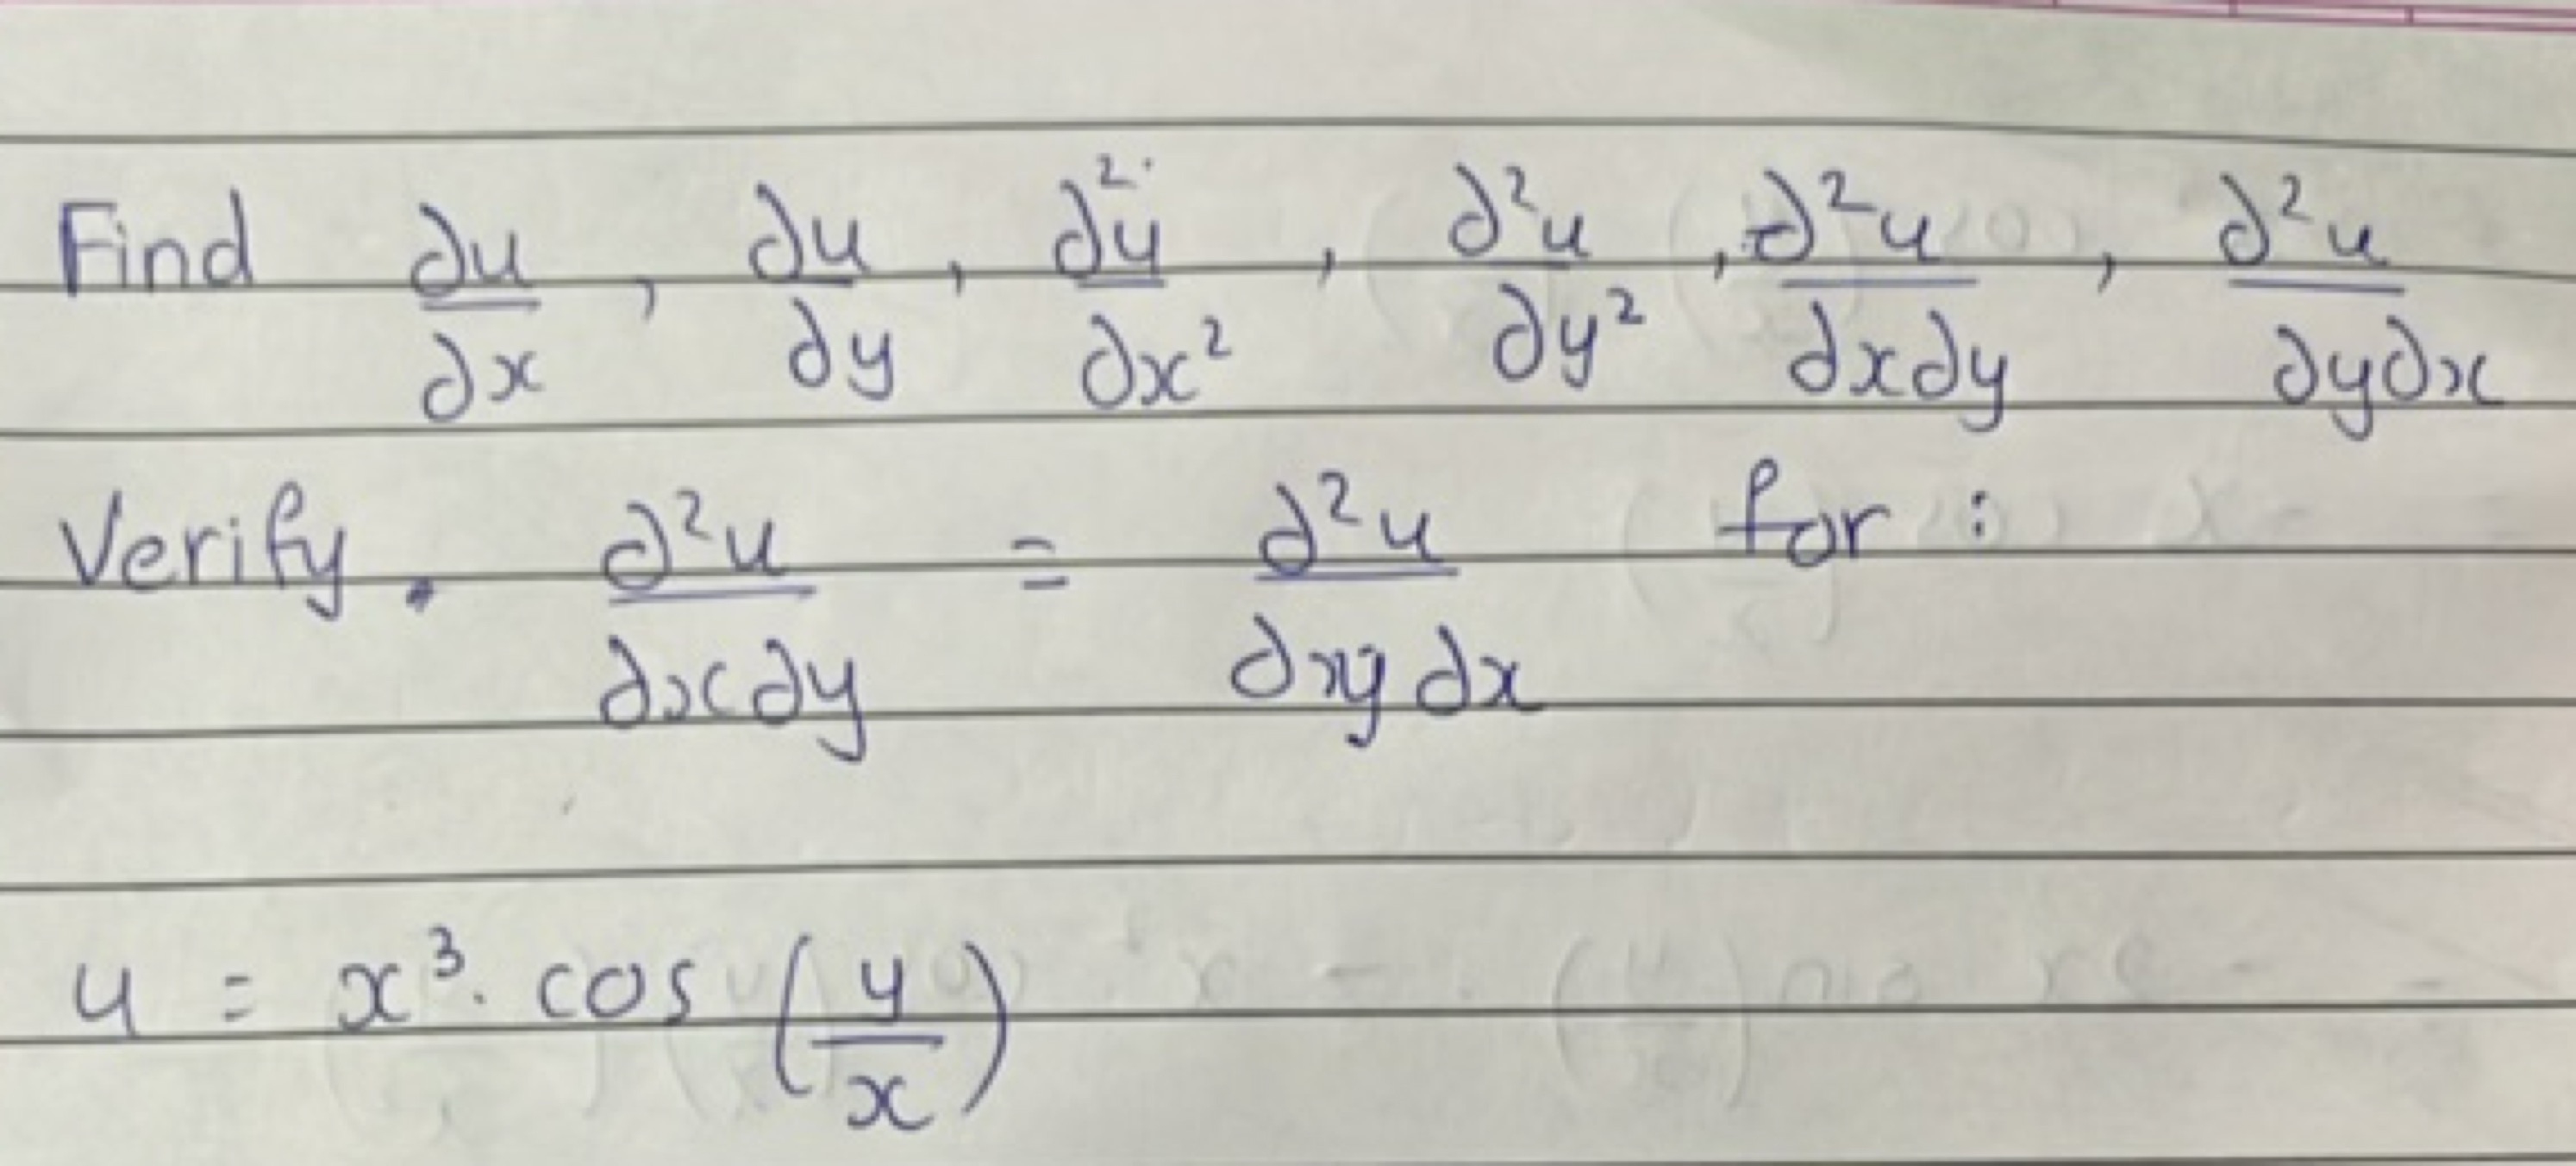 Find ∂u/∂x, ∂u/∂y, ∂²u/∂x², ∂²u/∂y², ∂²u/∂x∂y, ∂²u/∂y∂x
Verify. ∂²u/∂x∂y = ∂²u/∂y∂x for:
u = x³. cos (y/x)